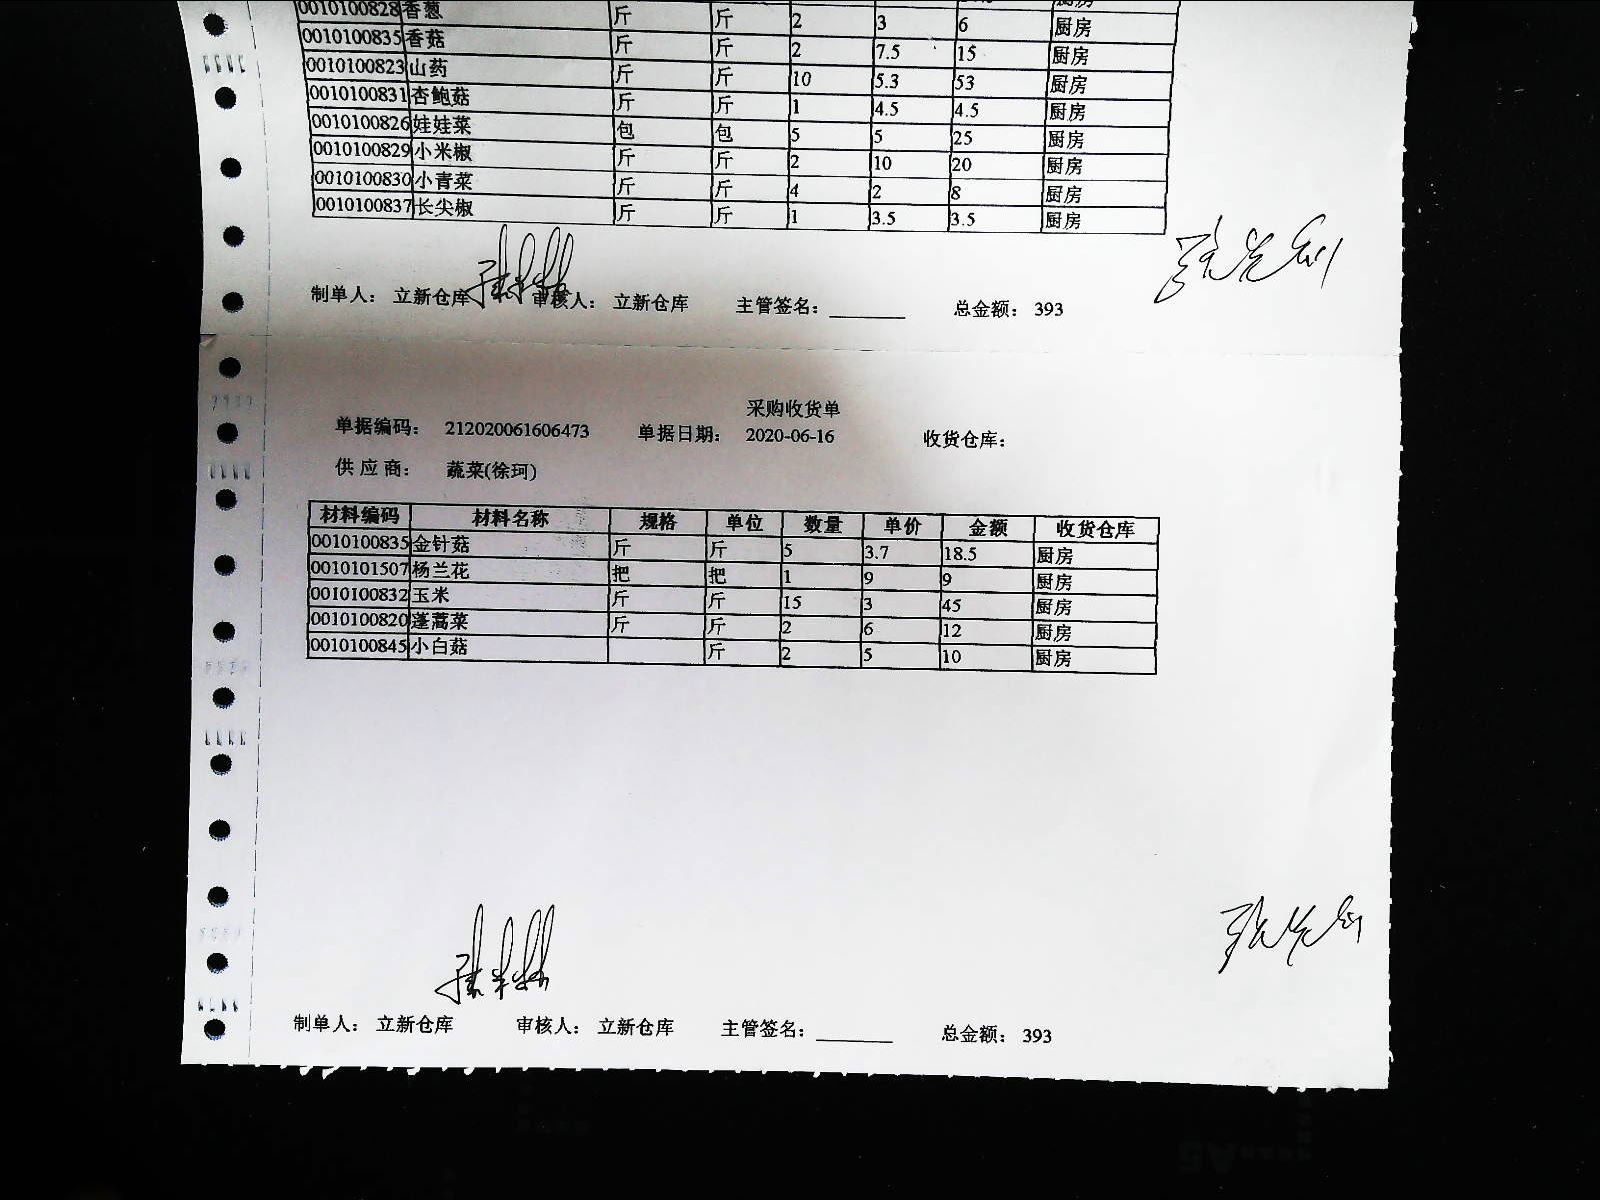 0010100828 香葱 斤 斤 2 3 6 厨房
0010100835 香菇 斤 斤 2 7.5 15 厨房
0010100823 山药 斤 斤 10 5.3 53 厨房
0010100831 杏鲍菇 斤 斤 1 4.5 4.5 厨房
0010100826 娃娃菜 包 包 5 5 25 厨房
0010100829 小米椒 斤 斤 2 10 20 厨房
0010100830 小青菜 斤 斤 4 2 8 厨房
0010100837 长尖椒 斤 斤 1 3.5 3.5 厨房
制单人: 立新仓库 审核人: 立新仓库 主管签名: 总金额: 393
采购收货单
单据编码: 212020061606473 单据日期: 2020-06-16 收货仓库:
供应商: 蔬菜(徐珂)
材料编码 材料名称 规格 单位 数量 单价 金额 收货仓库
0010100835 金针菇 斤 斤 5 3.7 18.5 厨房
0010101507 杨兰花 把 把 1 9 9 厨房
0010100832 玉米 斤 斤 15 3 45 厨房
0010100820 蓬蒿菜 斤 斤 2 6 12 厨房
0010100845 小白菇 斤 2 5 10 厨房
制单人: 立新仓库 审核人: 立新仓库 主管签名: 总金额: 393